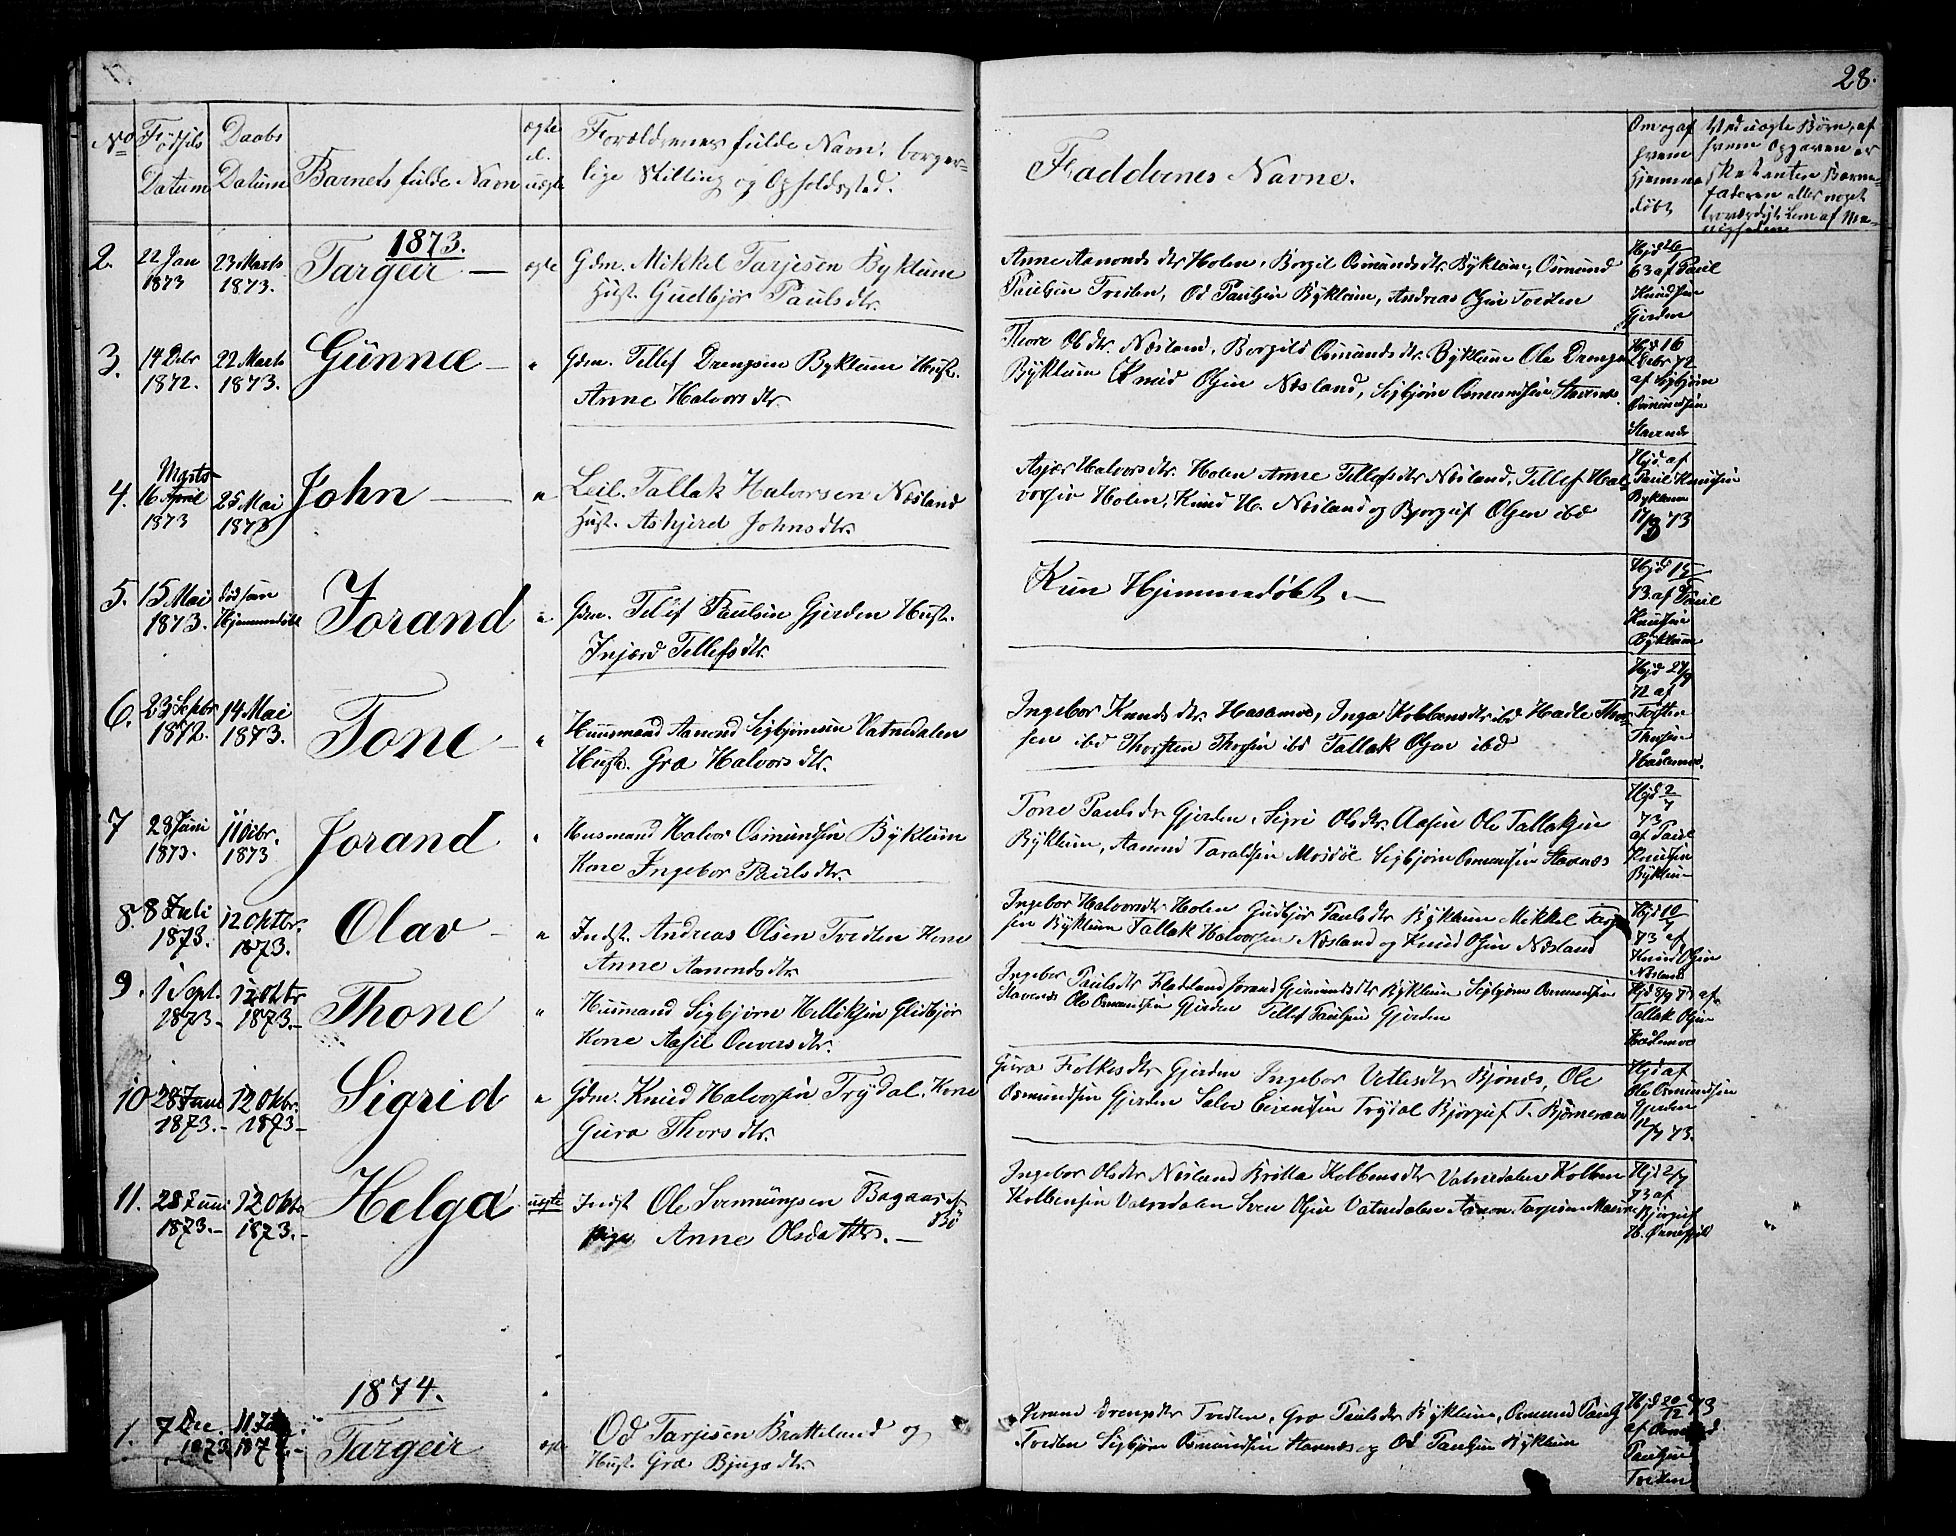 28.
No Fødsels Datum
Daabs Datum
Barnets fulde Navn
ægte el. uægte
Forældrenes fulde Navn, borger-
lige Stilling og Opholdssted.
Faddernes Navne.
Om og af hvem hjemme døbt
Ved uægte Børn, af
hvem Opgaven er
1873.
2. 22 Jan 1873
23 Marts 1873.
Targeir —
ægte
Gdm. Mikkel Tarjesen Byklum
Hust. Gudbjør Pauls dtr.
Anne Aanonds dtr Holen, Borgil Osmunds dtr. Byklum, Osmund
Paulsen Tveiten, Od Paulsen Byklum, Andreas Olsen Tveiten
Hjd
63 af Paul
Knudsen
Gjerden
3. 14 Debr 1872.
22 Marts 1873.
Gunne —
"
Gdm. Tellef Drengsen Byklum Hust.
Anne Halvors dtr.
Thore Ols dtr. Næsland, Borgild Osmunds dtr. Byklum Ole Drengs
Byklum Knud Olsen Næsland, Sigbjørn Osmundsen Stavenes
Hjd 16
Debr 72
af Sigbjørn
Osmundsen
Stavenes
4. Marts
16 April 1873
25 Mai 1873
John —
"
Leil. Tallak Halvorsen Næsland
Hust. Askjerd Johns dtr.
Asjær Halvors dtr. Holen Anne Tellefs dtr Næsland, Tellef Hal-
vorsen Holen, Knud H. Næsland og Bjorguf Olsen ibd
Hjd. af
Paul Knudsen
Byklum
17/3 73
5. 15 Mai 1873.
død som Hjemmedøbt
Jorand
"
Gdm. Tellef Paulsen Gjerden Hust.
Injærd Tellefs dtr.
Kun Hjemmedøbt. —
Hjd 15
73. af Paul
Knudsen
Byklum
6. 23 Septbr 1872.
14 Mai 1873.
Tone —
"
Huusmand Aanund Sigbjørnsen Vatnedalen
Hust. Gro Halvors dtr.
Ingebor Knuds dtr. Hasamoe, Inga Kolbens dtr ibd Hadle Thor-
sen ibd Thorsten Thorsen ibd Tallak Olsen ibd
Hjd 27/9
72 af
Torsten
Thorsen
Haslemoe.
7 28 Juni 1873.
11 Oktbr. 1873
Jorand —
"
Husmand Halvor Osmundsen Byklum
Kone Ingebor Pauls dtr.
Tone Pauls dtr Gjerden, Sigri Ols dtr. Aasen Ole Tallaksen
Byklum, Aanund Taraldsen Mosdøl Sigbjørn Osmundsen Stavenes
Hjd 2/7
73
af Paul
Knudsen
Byklum
8. 8 Juli 1873.
12 Oktbr. 1873.
Olav —
"
Indst. Andreas Olsen Tveiten Kone
Anne Aanonds dtr
Ingebor Halvors dtr Holen Gudbjør Pauls dtr Byklum Mikkel Tarje-
sen Byklum Tallak Halvorsen Næsland og Knud Olsen Næsland
Hjd 10/7
73 af
Knud Olsen
Næsland
9. 1 Sept. 1873 —
12 Oktbr 1873. —
Thone
"
Husmand Sigbjørn Helliksen Glidbjør
Kone Aasil Ouvers dtr.
Ingebor Pauls dtr Fladeland Jorand Gjermunds dtr Byklum Sigbjørn Osmundsen
Stavenes Ole Osmundsen Gjerden Tellef Paulsen Gjerden
Hjd 8/9 73 af
Tallak Olsen
Haslemoe
10 28 Juni 1873. —
12 Oktbr. 1873 —
Sigrid
"
Gdm. Knud Halvorsen Trydal. Kone
Guro Thors dtr.
Guro Folkes dtr Gjerden Ingebor Vetles dtr Bjones, Ole
Osmundsen Gjerden Salve Eivensen Trydal Bjørguf T. Bjørneraa
Hjd af
Ole Osmundsen
Gjerden
12/7 73.
11. 28 Juni 1873. —
12 Oktbr 1873. —
Helga
uægte
Indst Ole Svenungsen Bagaas af
Bø
pige Anne Olsdatter. —
Ingebor Ols dtr Næsland Britta Kolbens dtr Vatnedalen Kolben
Kolbensen Vatnedalen Sven Olsen Vatnedalen Aanon Tarjesen
Hjd 2/7
73 af
Bjørguf
H. Ørnefjeld
1874.
1. 7 Dec. 1873
Targeir
ægte
Od Tarjesen Brotteland og
Hust. Gro Bjugs dtr.
Jorand Drengs dtr Tveiten, Gro Pauls dtr Byklum, Osmund Pauls
Tveiten Sigbjørn Osmundsen Stavnes og Od Paulsen Byklum
Hjd 20/12 73
af Osmund
Paulsen
Tveiten